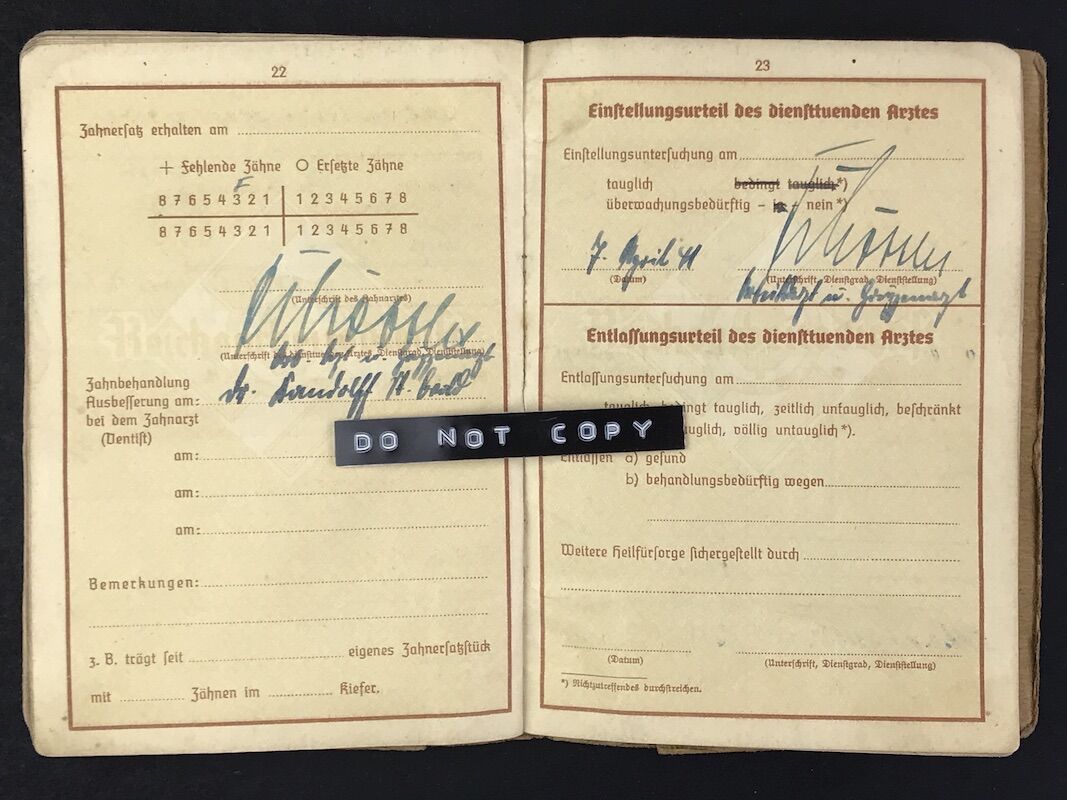 22
Zahnersatz erhalten am
+ Fehlende Zähne O Ersetzte Zähne
F
8 7 6 5 4 3 2 1 1 2 3 4 5 6 7 8
8 7 6 5 4 3 2 1 1 2 3 4 5 6 7 8
(Unterschrift des Zahnarztes)
(Unterschrift des diensttuenden Arztes, Dienstgrad, Dienststellung)
Zahnbehandlung
Ausbesserung am:
bei dem Zahnarzt
(Dentist)
am:
am:
am:
Bemerkungen:
z. B. trägt seit eigenes Zahnersatzstück
mit Zähnen im Kiefer.
DO NOT COPY
23
Einstellungsurteil des diensttuenden Arztes
Einstellungsuntersuchung am
tauglich bedingt tauglich*)
überwachungsbedürftig – ja – nein*)
7. April 41
(Datum) (Unterschrift, Dienstgrad, Dienststellung)
Entlassungsurteil des diensttuenden Arztes
Entlassungsuntersuchung am
tauglich, bedingt tauglich, zeitlich untauglich, beschränkt
tauglich, völlig untauglich*).
Entlassen a) gesund
b) behandlungsbedürftig wegen
Weitere Heilfürsorge sichergestellt durch
(Datum) (Unterschrift, Dienstgrad, Dienststellung)
*) Nichtzutreffendes durchstreichen.